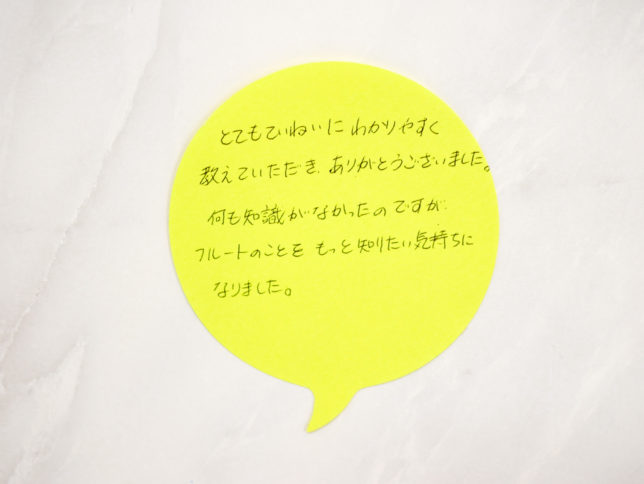 とてもていねいに わかりやすく
教えていただき、ありがとうございました。
何も知識がなかったのですが、
フルートのことを もっと知りたい気持ちに
なりました。